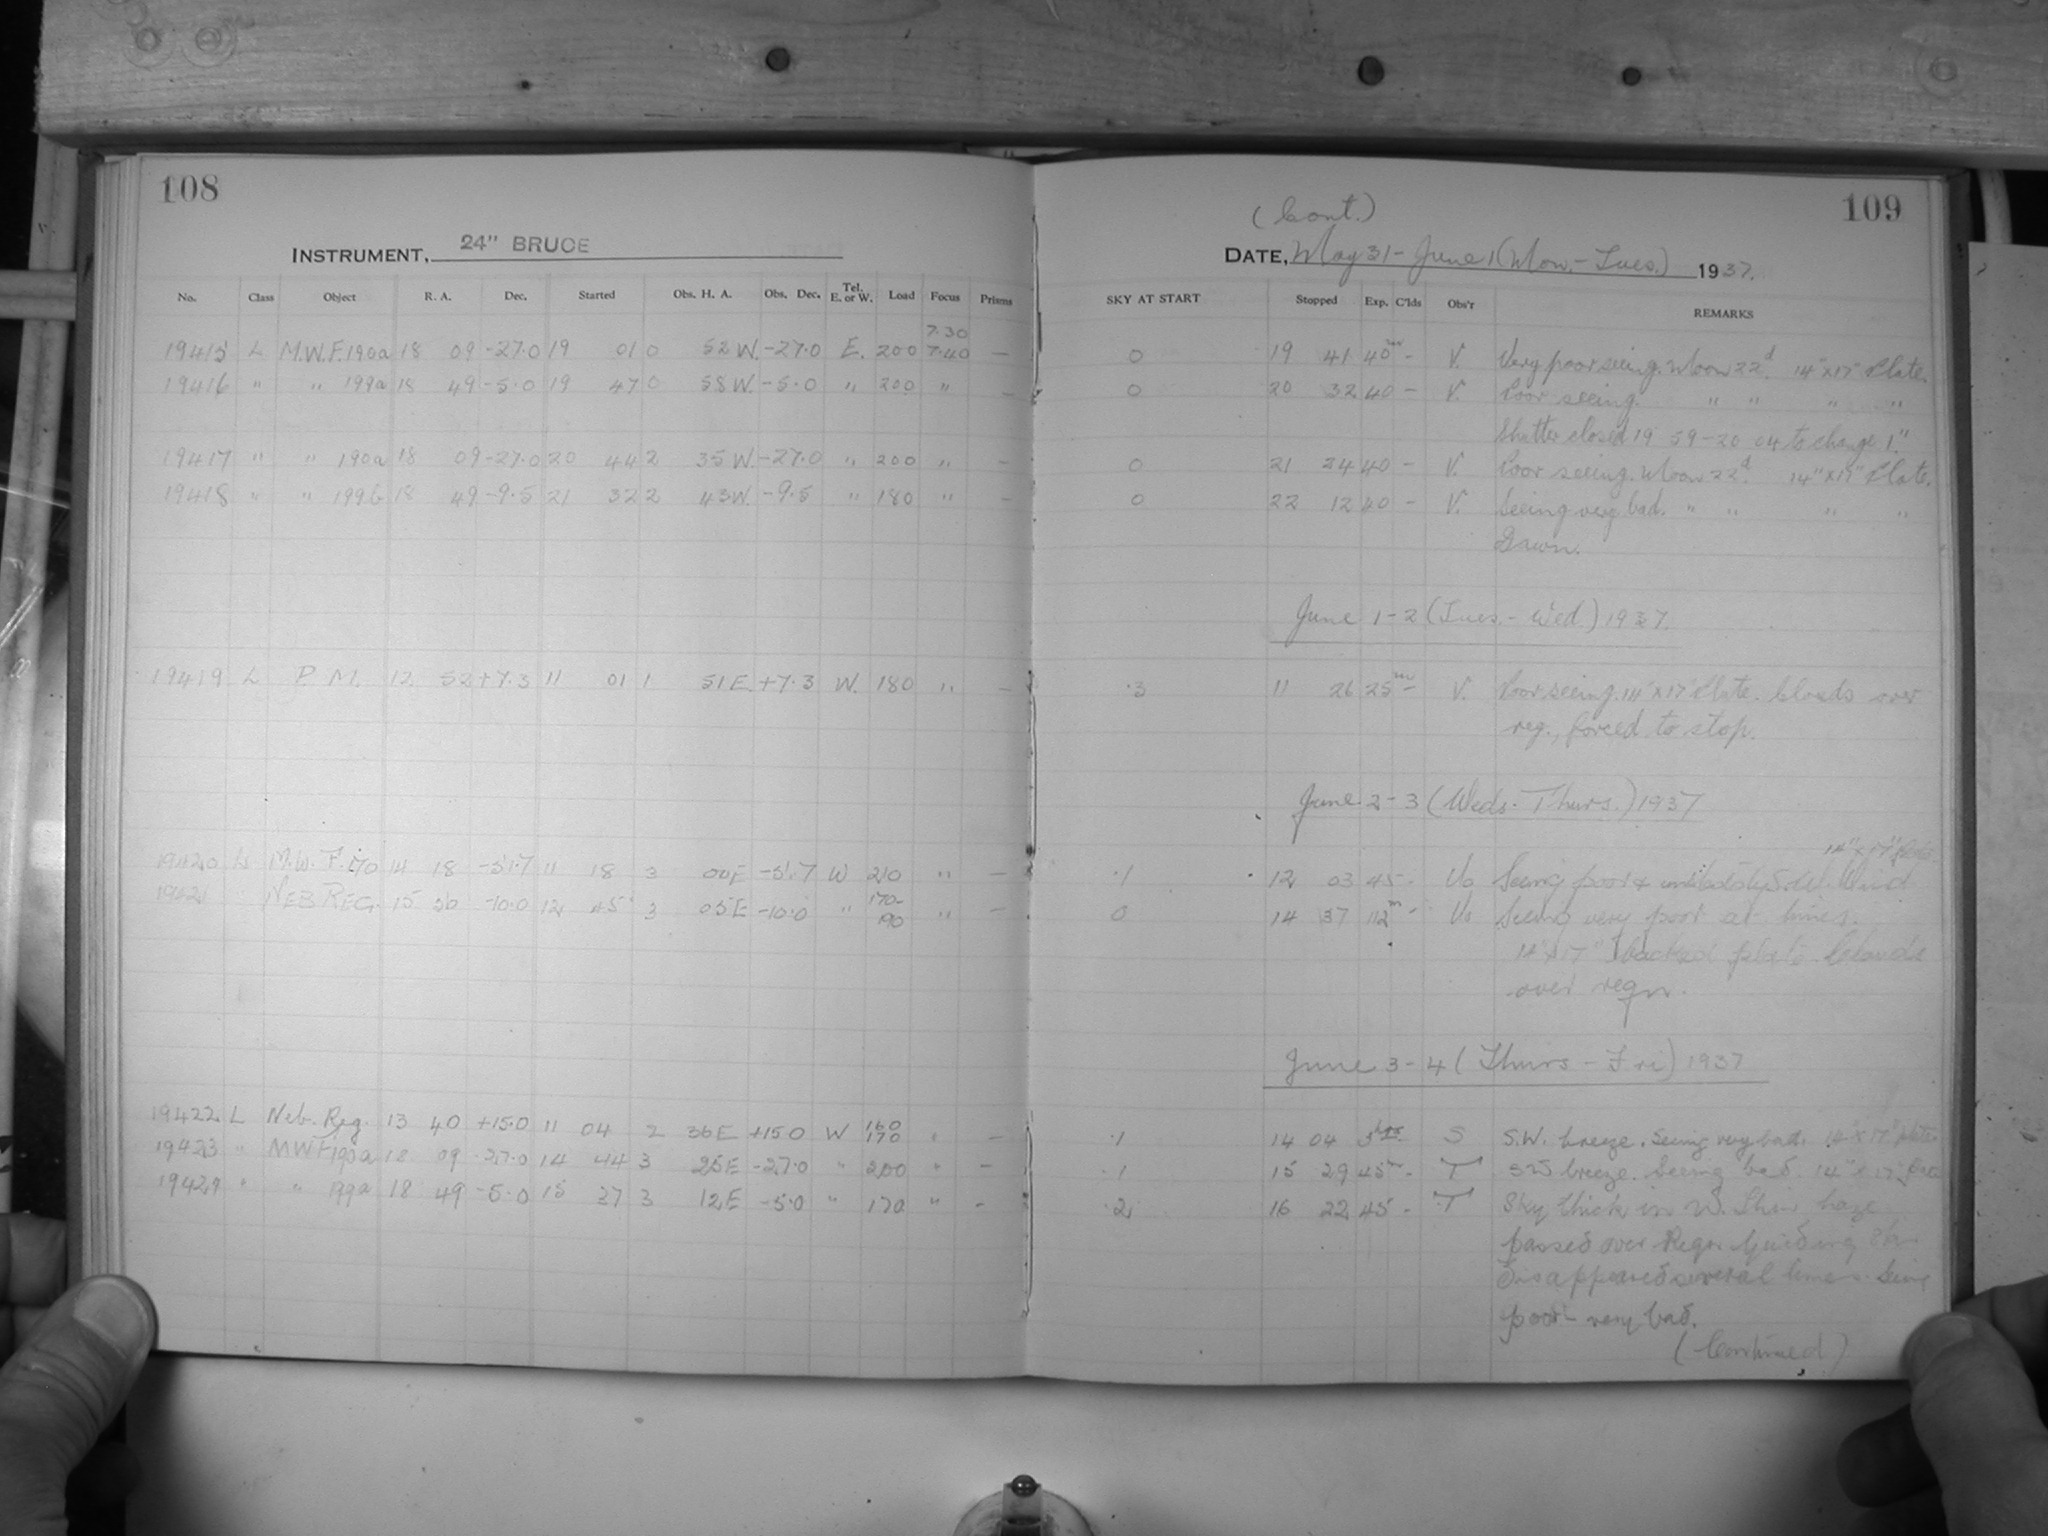 108
INSTRUMENT, 24" BRUCE
No. Class Object R. A. Dec. Started Obs. H. A. Obs. Dec. Tel. E. or W. Load Focus Prisms
7.30
19415 L M.W.F. 190a 18 09 -27.0 19 01 0 52 W. -27.0 E. 200 7.40 —
19416 " " 199a 18 49 -5.0 19 47 0 58 W. -5.0 " 200 " —
19417 " " 190a 18 09 -27.0 20 44 2 35 W. -27.0 " 200 " —
19418 " " 199b 18 49 -9.5 21 32 2 43 W. -9.5 " 180 " —
19419 L P. M. 12 52 +7.3 11 01 1 51 E. +7.3 W. 180 " —
19420 L M.W.F. 170 14 18 -51.7 11 18 3 00 E -51.7 W 210 " —
19421 NEB REG. 15 -10.0 12 45 3 05 E -10.0 " 170-190 " —
19422 L Neb. Reg. 13 40 +15.0 11 04 2 36 E +15.0 W 160 170 " —
19423 " MWF 190a 18 09 -27.0 14 44 3 25 E -27.0 " 200 " —
19424 " " 199a 18 49 -5.0 15 37 3 12 E -5.0 " 170 " -
109
(Cont.)
DATE, May 31 - June 1 (Mon. - Tues.) 1937.
SKY AT START Stopped Exp. C'lds Obs'r REMARKS
0 19 41 40m - V. Very poor seeing. Moon 22d. 14" x 17" Plate.
0 20 32 40 - V. Poor seeing. " " " "
Shutter closed 19 59 - 20 04 to change 1."
0 21 24 40 - V. Poor seeing. Moon 22d. 14" x 17" Plate.
0 22 12 40 - V. Seeing very bad. " " " "
Dawn.
June 1-2 (Tues. - Wed.) 1937.
.3 11 26 25m - V. Poor seeing. 14" x 17" Plate. Clouds over
reg., forced to stop.
June 2-3 (Weds. Thurs.) 1937
14" x 17" plate.
.1 12 03 45 - Uo Seeing poor & unsteady S.W. Wind
0 14 37 112m - Uo Seeing very poor at times.
14" x 17" backed plate Clouds
over regn.
June 3-4 (Thurs - Fri) 1937
.1 14 04 S S.W. breeze. Seeing very bad. 14" x 17" plate
.1 15 29 45m - T SW breeze. Seeing bad. 14" x 17"
.2 16 22 45 - T Sky thick in W. Thin haze
passed over Regn. Guiding
Disappeared several times. Seeing
poor - very bad.
(Continued)